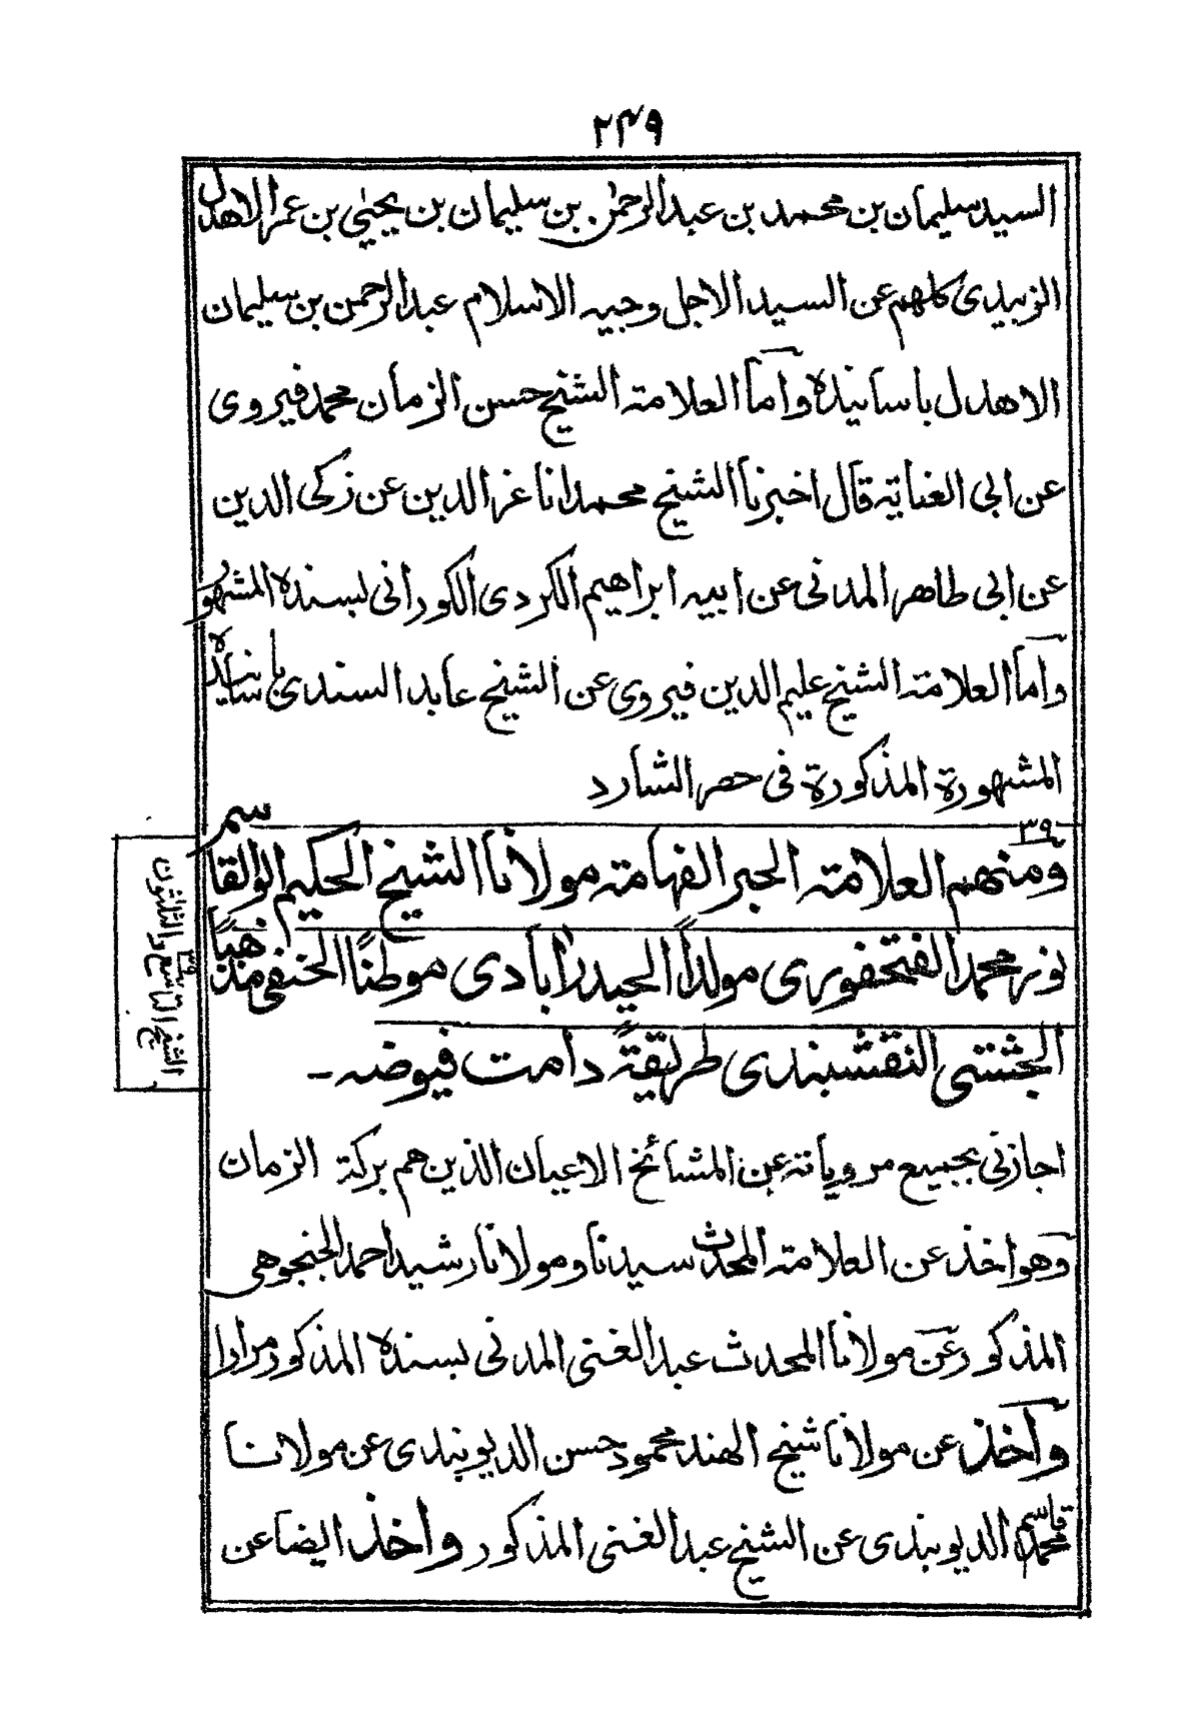 ٢٤٩
السيد سليمان بن محمد بن عبد الرحمٰن بن سليمان بن يحيٰي بن عمر الاهدل
الزبيدى كلهم عن السيد الاجل وجيه الاسلام عبد الرحمن بن سليمان
الاهدل باسانيده وأما العلامة الشيخ حسن الزمان محمد فيروى
عن ابى العناية قال اخبرنا الشيخ محمد انا عز الدين عن زكى الدين
عن ابى طاهر المدنى عن ابيه ابراهيم الكردى الكورانى بسنده المشهور
وأما العلامة الشيخ عليم الدين فيروى عن الشيخ عابد السندى باسانيده
المشهورة المذكورة فى حصر الشارد
٣٩
ومنهم العلامة الحبر الفهامة مولانا الشيخ الحكيم ابو القاسم
نور محمد الفتحفورى مولداً الحيدرآبادى موطناً الحنفى مذهباً
الجشتى النقشبندى طريقةً دامت فيوضه ـ
الشيخ التاسع والثلثون
٣٩
اجازنى بجميع مروياته عن المشائخ الاعيان الذين هم بركة الزمان
وهو اخذ عن العلامة المحدث سيدنا ومولانا رشيد احمد الجنجوهى
المذكور وعن مولانا المحدث عبد الغنى المدنى بسنده المذكور مرارا
وأخذ عن مولانا شيخ الهند محمود حسن الديوبندى عن مولانا
محمد قاسم الديوبندى عن الشيخ عبد الغنى المذكور واخذ ايضا عن